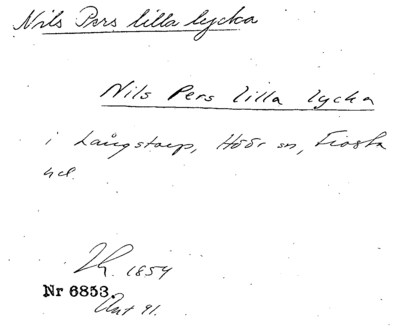 Nils Pers lilla lycka
Nils Pers lilla lycka
i Långstorp, Höör sn, Frosta
hd.
1854
Nr 6853.
Ant 91.